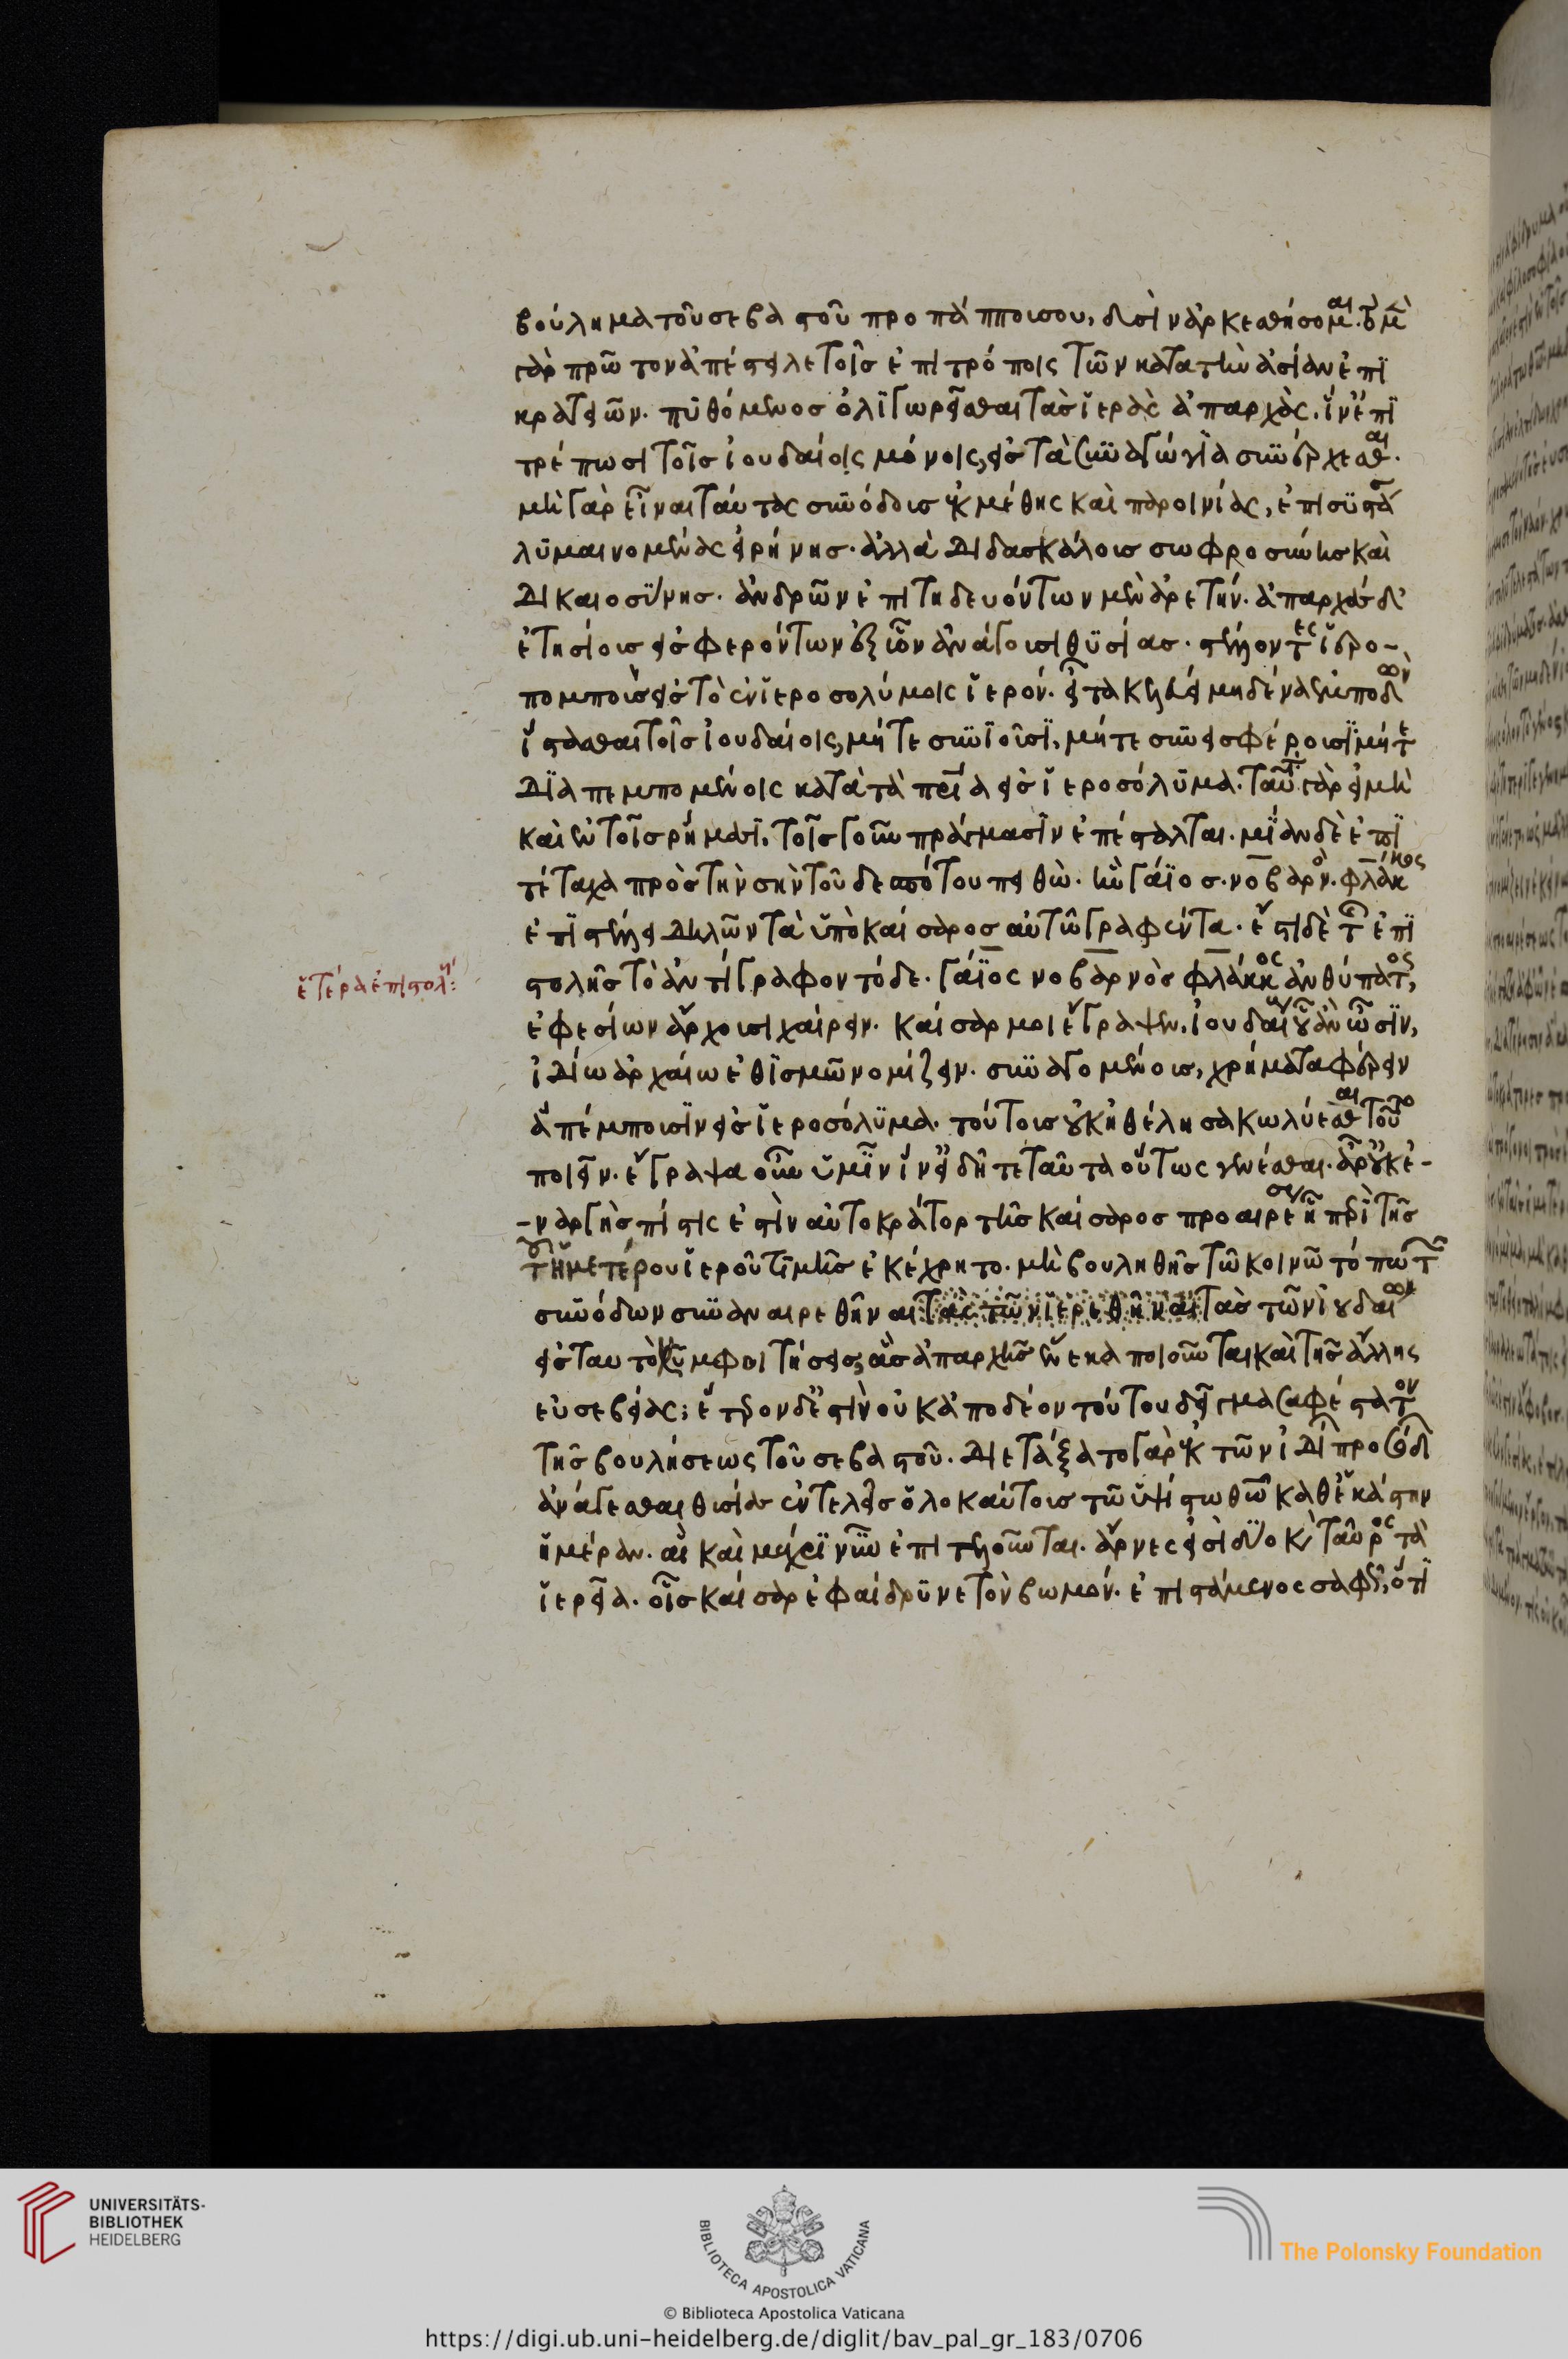 βούλημα τοῦ σεβαστοῦ προπάππου σου, δυσὶν ἀρκεσθήσομαι. τὸ μὲν
γὰρ πρῶτον ἀπέστειλε τοῖς ἐπιτρόποις τῶν κατὰ τὴν ἀσίαν ἐπι
κρατειῶν. πυθόμενος ὀλιγωρεῖσθαι τὰς ἱερὰς ἀπαρχάς. ἵν' ἐπι
τρέπωσι τοῖς ἰουδαίοις μόνοις, εἰς τὰ συναγώγια συνέρχεσθαι.
μὴ γὰρ εἶναι ταύτας συνόδους ἐκ μέθης καὶ παροινίας, ἐπισυστά
λυμαινομένας εἰρήνης. ἀλλὰ διδασκάλοις σωφροσύνης καὶ
δικαιοσύνης. ἀνδρῶν ἐπιτηδευόντων μὲν ἀρετήν. ἀπαρχὰς δὲ
ἐτησίους εἰσφερόντων ἐξ ὧν ἀνάγουσι θυσίας. στέλλοντες ἱερο-
πομποὺς εἰς τὸ ἐν ἱεροσολύμοις ἱερόν. εἶτα κελεύει μηδένα ἐμποδὼν
ἵστασθαι τοῖς ἰουδαίοις, μήτε συνιοῦσι, μήτε συνεισφέρουσι μήτε
διαπεμπομένοις κατὰ τὰ πάτρια εἰς ἱεροσόλυμα. ταῦτα γὰρ εἰ μὴ
καὶ ἐν τοῖς ῥήμασι, τοῖς γοῦν πράγμασιν ἐπέσταλται. μίαν δὲ ἐπι
τέταχα πρὸς τὴν σὴν τοῦ δεσπότου πειθώ. ἣν γάϊος νοβαρνὸς φλάκκος
ἐπιστέλλει δηλῶν τὰ ὑπὸ καίσαρος αὐτῶ γραφέντα. ἔστι δὲ τῆς ἐπι
στολῆς τὸ ἀντίγραφον τόδε. γάϊος νοβαρνὸς φλάκκος ἀνθύπατος,
ἑτέρα ἐπιστολή:
ἐφεσίων ἄρχουσι χαίρειν. καίσαρ μοι ἔγραψεν, ἰουδαίους οὗ ἂν ὦσιν,
ἰδίω ἀρχαίω ἐθισμῶ νομίζειν. συναγομένους, χρήματα φέρειν
ἃ πέμπουσιν εἰς ἱεροσόλυμα. τούτους οὐκ ἠθέλησα κωλύεσθαι τοῦτο
ποιεῖν. ἔγραψα οὖν ὑμῖν ἵν' εἰδῆτε ταῦτα οὕτως γενέσθαι. ἆρ' οὐκ ἐ-
-ναργὴς πίστις ἐστὶν αὐτοκράτορ τῆς καίσαρος προαιρέσεως ἧ περὶ τῆς
τοῦ ἡμετέρου ἱεροῦ τιμῆς ἐκέχρητο. μὴ βουληθεὶς τῶ κοινῶ τύπω τῶν
συνόδων συναναιρεθῆναι τὰς τῶν ἱερεθῆναι τὰς τῶν ἰουδαίων
εἰς ταυτὸ συμφοιτήσεις, ἃς ἀπαρχῆς ἕνεκα ποιοῦνται καὶ τῆς ἄλλης
εὐσεβείας; ἕτερον δ' ἐστὶν οὐκ ἀποδέον τούτου δεῖγμα σαφέστατον
τῆς βουλήσεως τοῦ σεβαστοῦ. διετάξατο γὰρ ἐκ τῶν ἰδίων προσόδων
ἀνάγεσθαι θυσίας ἐντελεῖς ὁλοκαύτους τῶ ὑψίστω θεῶ καθ' ἑκάστην
ἡμέραν. αἳ καὶ μέχρι νῦν ἐπιτελοῦνται. ἄρνες εἰσὶ δύο καὶ ταῦρος τὰ
ἱερεῖα. οἷς καίσαρ ἐφαίδρυνε τὸν βωμόν. ἐπιστάμενος σαφῶς, ὅτι
UNIVERSITÄTS-
BIBLIOTHEK
HEIDELBERG
BIBLIOTECA APOSTOLICA VATICANA
The Polonsky Foundation
© Biblioteca Apostolica Vaticana
https://digi.ub.uni-heidelberg.de/diglit/bav_pal_gr_183/0706